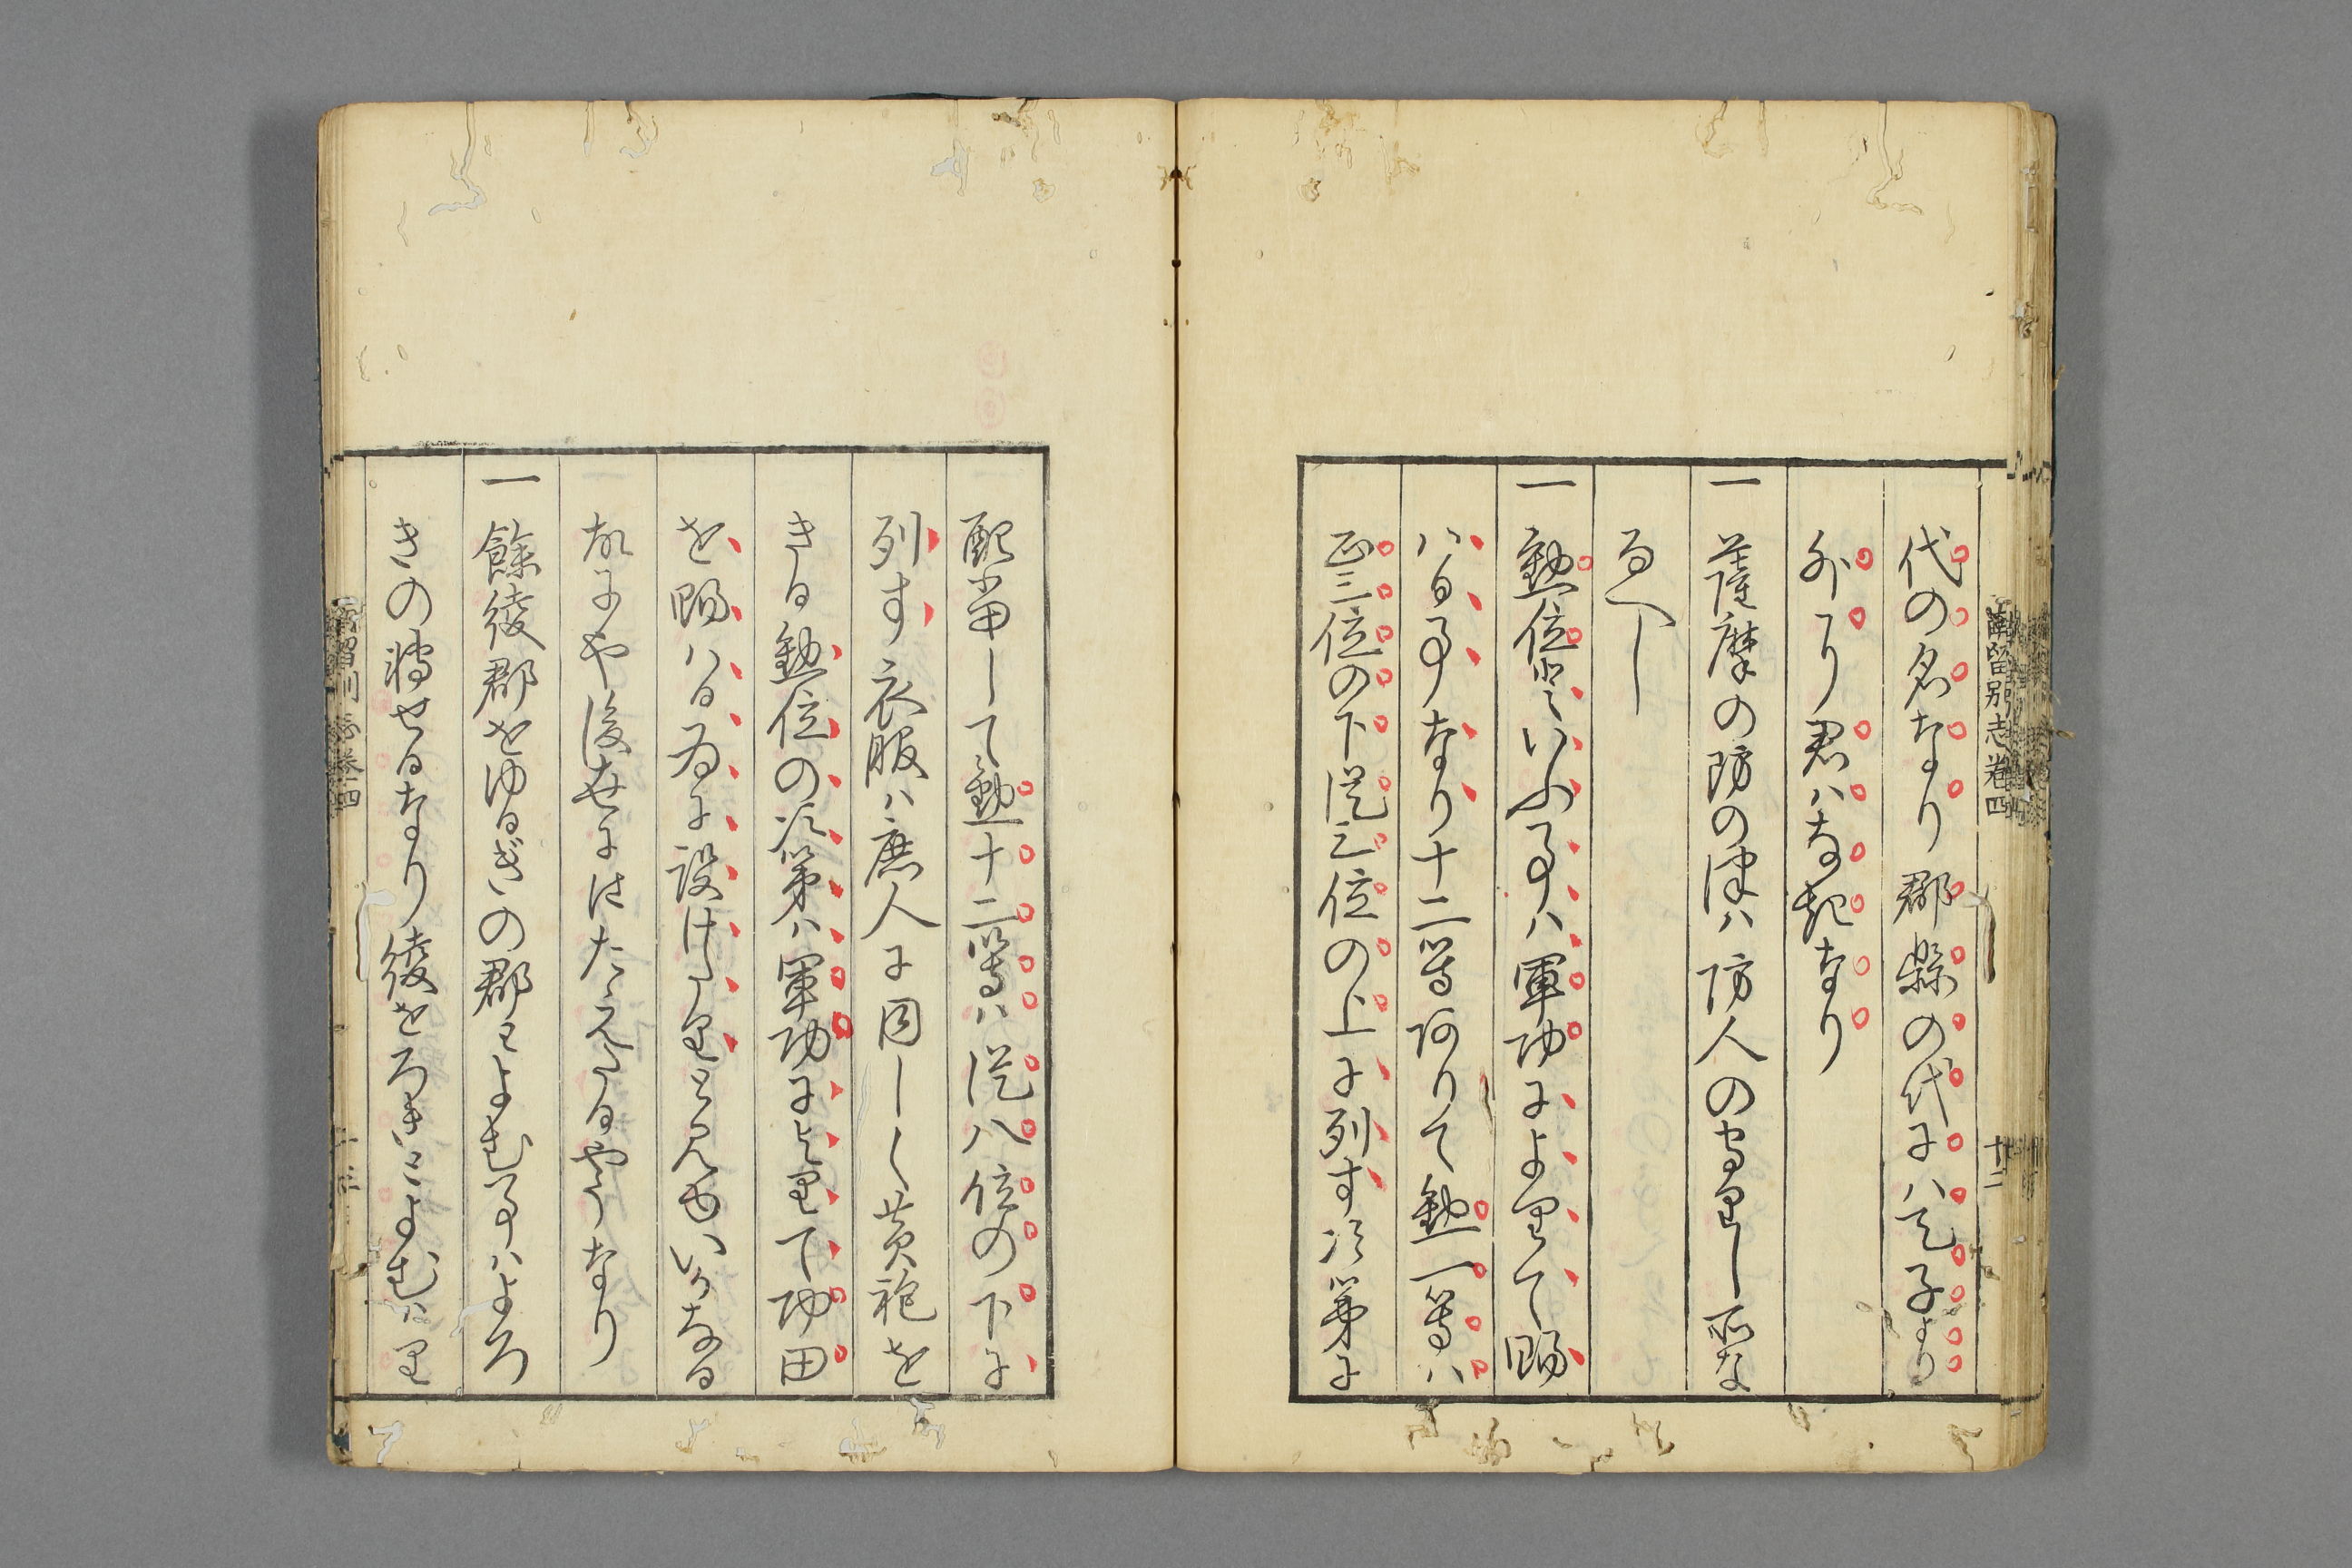 南留別志卷四
十二
代の名なり郡縣の代には天子より
外に君はなきなり
一薩摩の防の津は防人のをりし所な
るへし
一勲位といふ事は軍功によりて賜
はる事なり十二等ありて勲一等は
正三位の下従三位の上に列す次第に
配當して勲十二等は従八位の下に
列す衣服は庶人に同しく黄袍を
きる勲位の次第は軍功によりて功田
を賜はる為に設けたりと見ゆいかなる
故にや後世にはたえたるやうなり
一餘綾郡をゆるぎの郡とよむ事はよろ
きの轉せるなり綾をろきとよむは